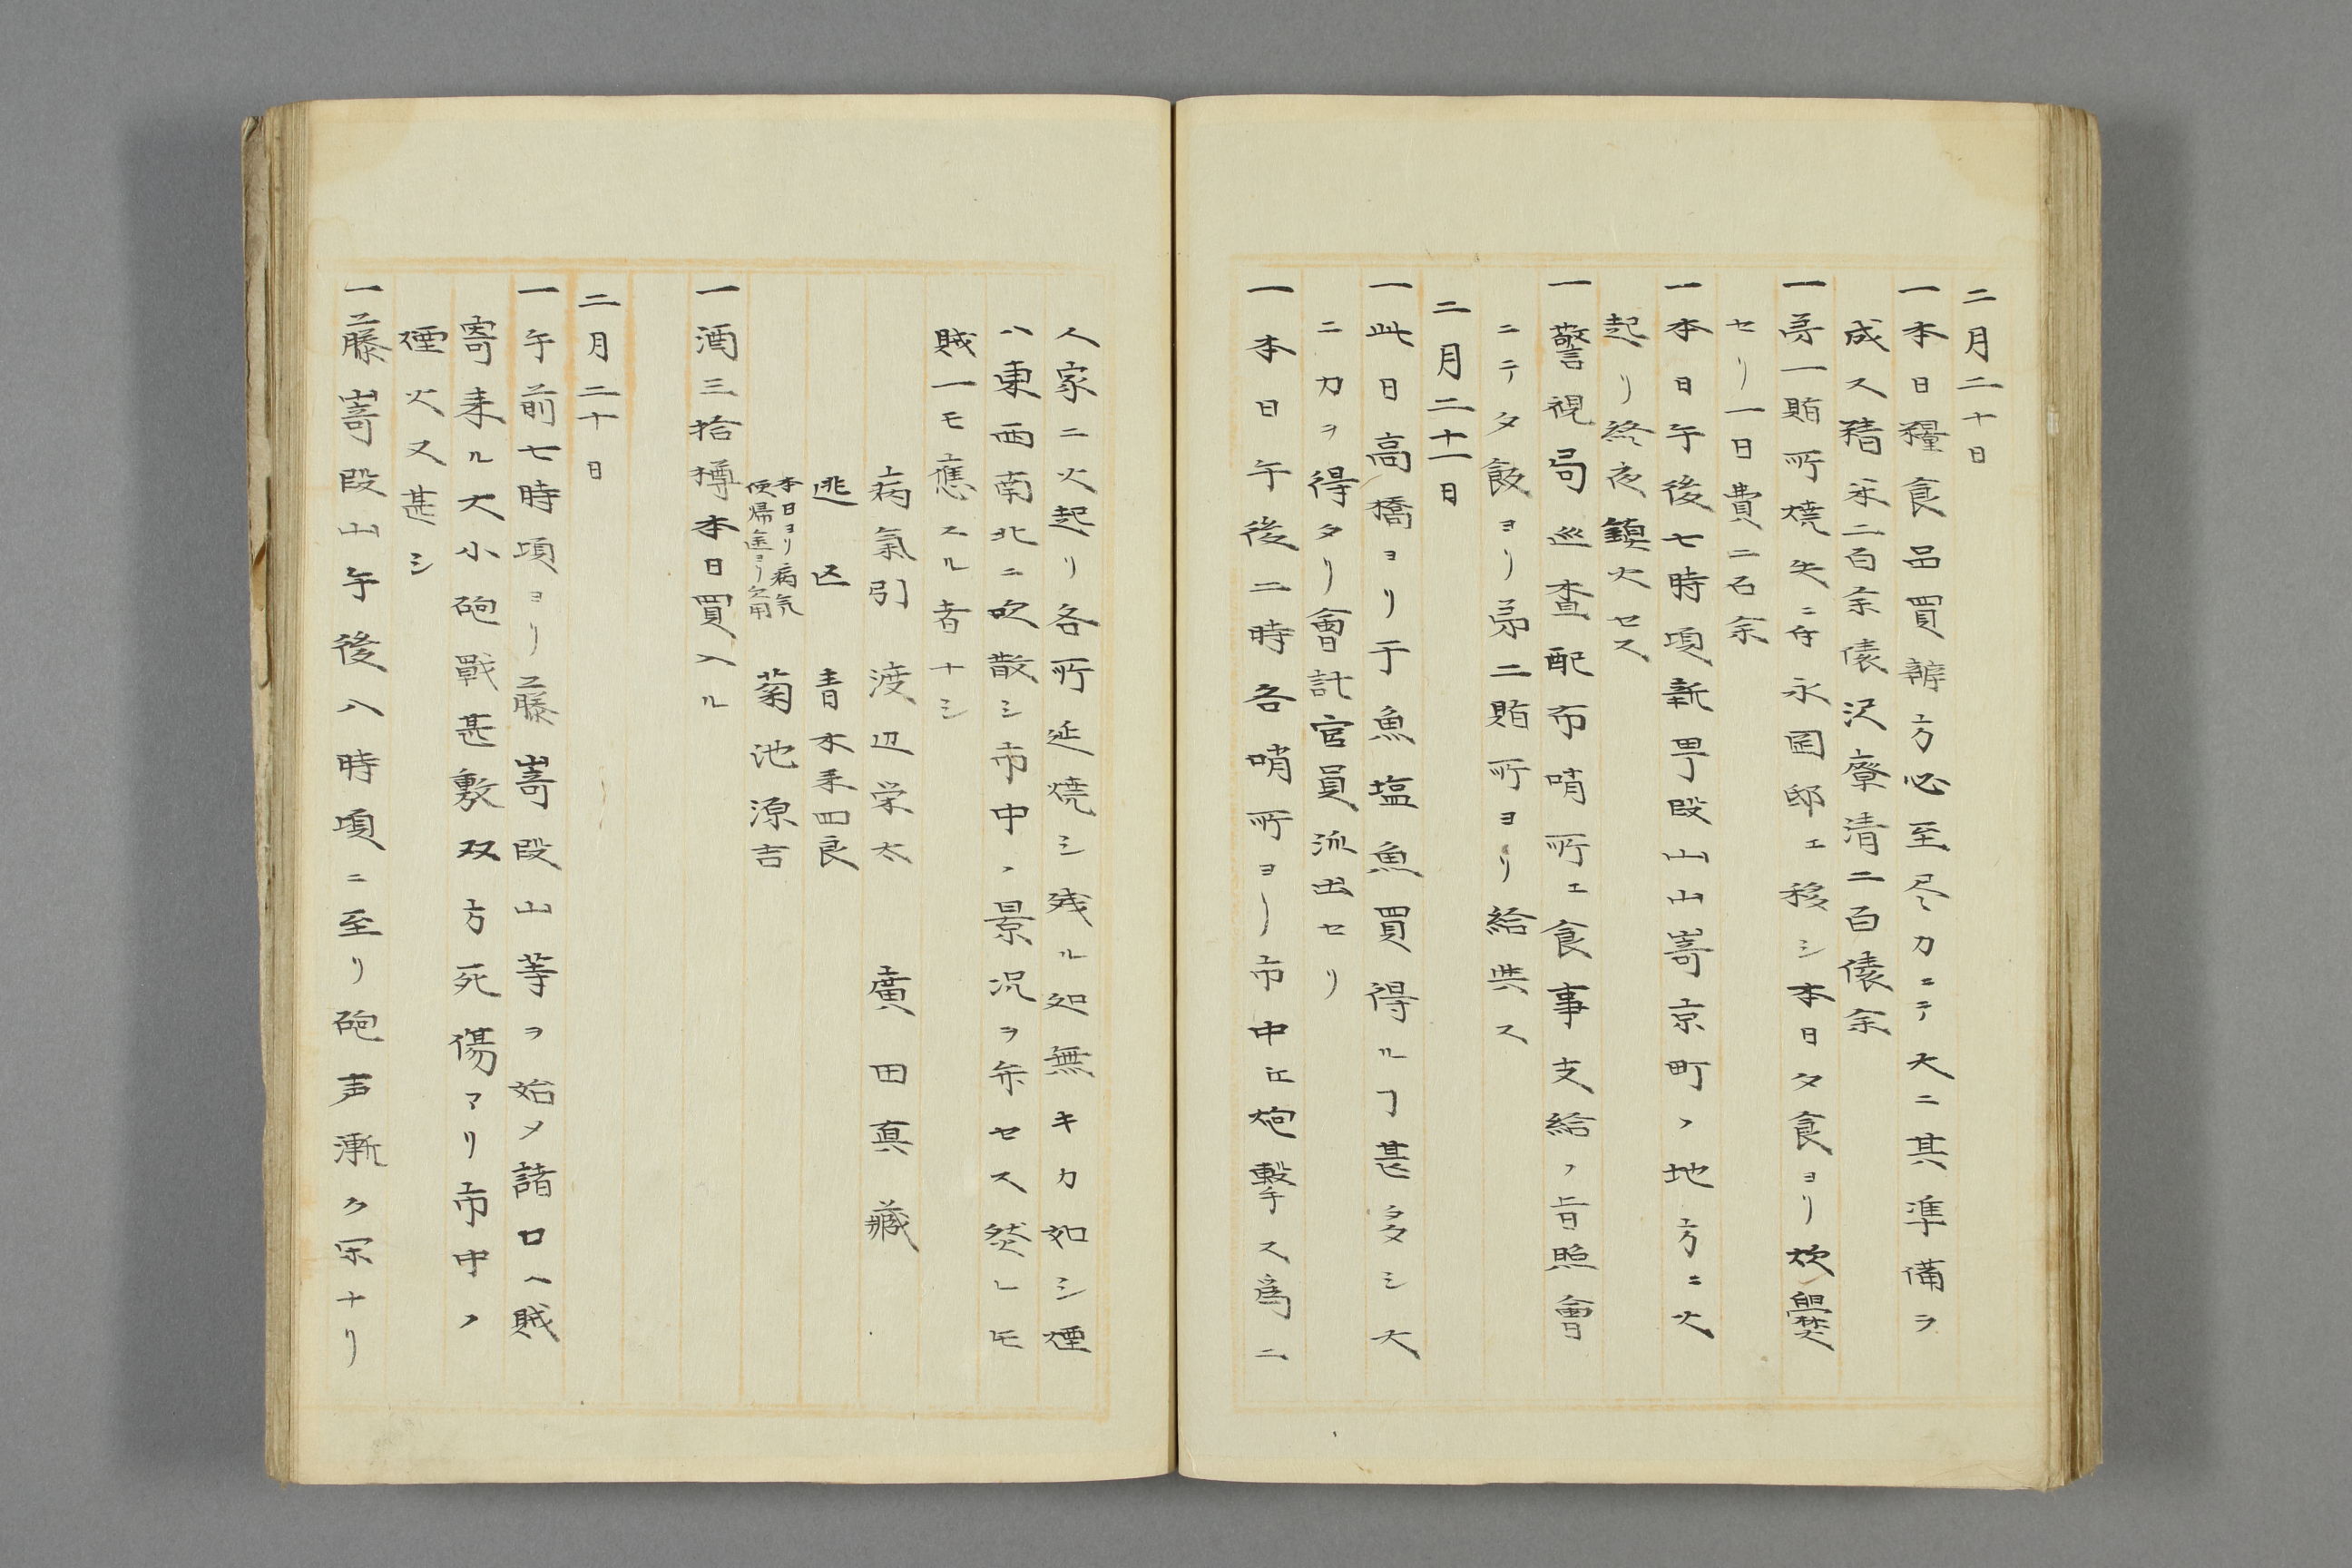 二月二十日
一本日糧食品買辨方必至尽力ニテ大ニ其準備ヲ
成ス精米二百余俵沢庵漬二百俵余
一第一賄所焼失ニ付永国邸エ移シ本日夕食ヨリ炊爨
セリ一日費二石余
一本日午後七時頃新甼段山山嵜京町ノ地方ニ火
起リ終夜鎮火セス
一警視局巡査配布哨所エ食事支給ノ旨照會
ニテ夕飯ヨリ第二賄所ヨリ給與ス
二月二十一日
一此日高橋ヨリ干魚塩魚買得ルヿ甚多シ大
ニカヲ得タリ會計官員派出セリ
一本日午後二時各哨所ヨリ市中江炮撃ス爲ニ
人家ニ火起リ各所延焼シ残ル処無キカ如シ煙
ハ東西南北ニ吹散シ市中ノ景況ヲ弁セス然レモ
賊一モ應スル者ナシ
病氣引 渡辺栄太 廣田真藏
逃亡 青木采四良
本日ヨリ病気
使帰途ヨリ 菊池源吉
一酒三拾樽本日買入ル
二月二十日
一午前七時頃ヨリ藤嵜段山等ヲ始メ諸口ヘ賊
寄来ル大小砲戰甚敷双方死傷アリ市中ノ
煙火又甚シ
一藤嵜段山午後八時頃ニ至リ砲声漸ク罕ナリ